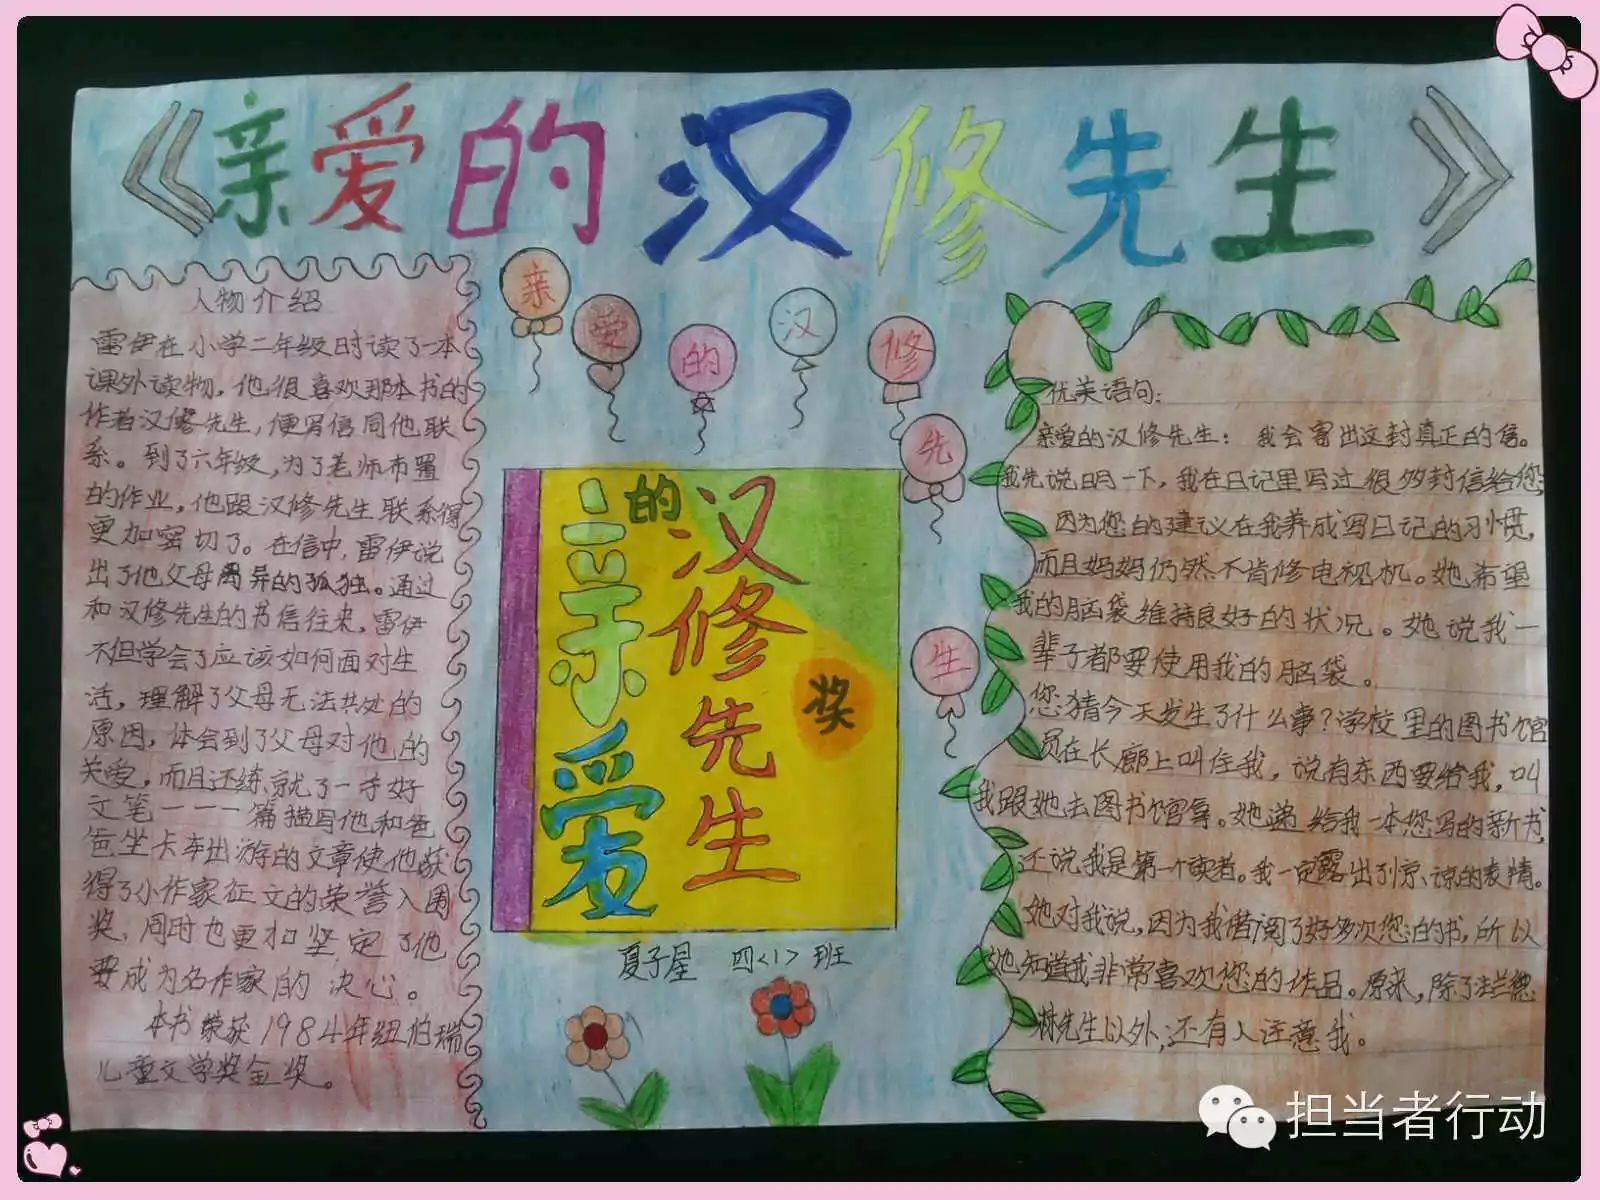 《亲爱的汉修先生》
人物介绍
雷伊在小学二年级时读了一本
课外读物，他很喜欢那本书的
作者汉修先生，便写信同他联
系。到了六年级，为了老师布置
的作业，他跟汉修先生联系得
更加密切了。在信中，雷伊说
出了他父母离异的孤独。通过
和汉修先生的书信往来，雷伊
不但学会了应该如何面对生
活，理解了父母无法共处的
原因，体会到了父母对他的
关爱，而且还练就了一手好
文笔———篇描写他和爸
爸坐卡车出游的文章使他获
得了小作家征文的荣誉入围
奖，同时也更加坚定了他
要成为名作家的决心。
本书荣获1984年纽伯瑞
儿童文学奖金奖。
亲爱的汉修先生
亲爱的汉修先生
奖
夏子星 四<1>班
优美语句：
亲爱的汉修先生：我会寄出这封真正的信。
我先说明一下，我在日记里写过很多封信给您，
因为您的建议在我养成写日记的习惯，
而且妈妈仍然不肯修电视机。她希望
我的脑袋维持良好的状况。她说我一
辈子都要使用我的脑袋。
您猜今天发生了什么事？学校里的图书馆
员在长廊上叫住我，说有东西要给我，叫
我跟她去图书馆等。她递给我一本您写的新书，
还说我是第一个读者。我一定露出了惊讶的表情。
她对我说，因为我借阅了好多次您的书，所以
她知道我非常喜欢您的作品。原来，除了法兰德
林先生以外，还有人注意我。
担当者行动